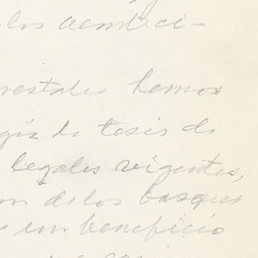 los aconteci-
restales hemos
gía la tesis de
legales vigentes,
on de los bosques
en beneficio